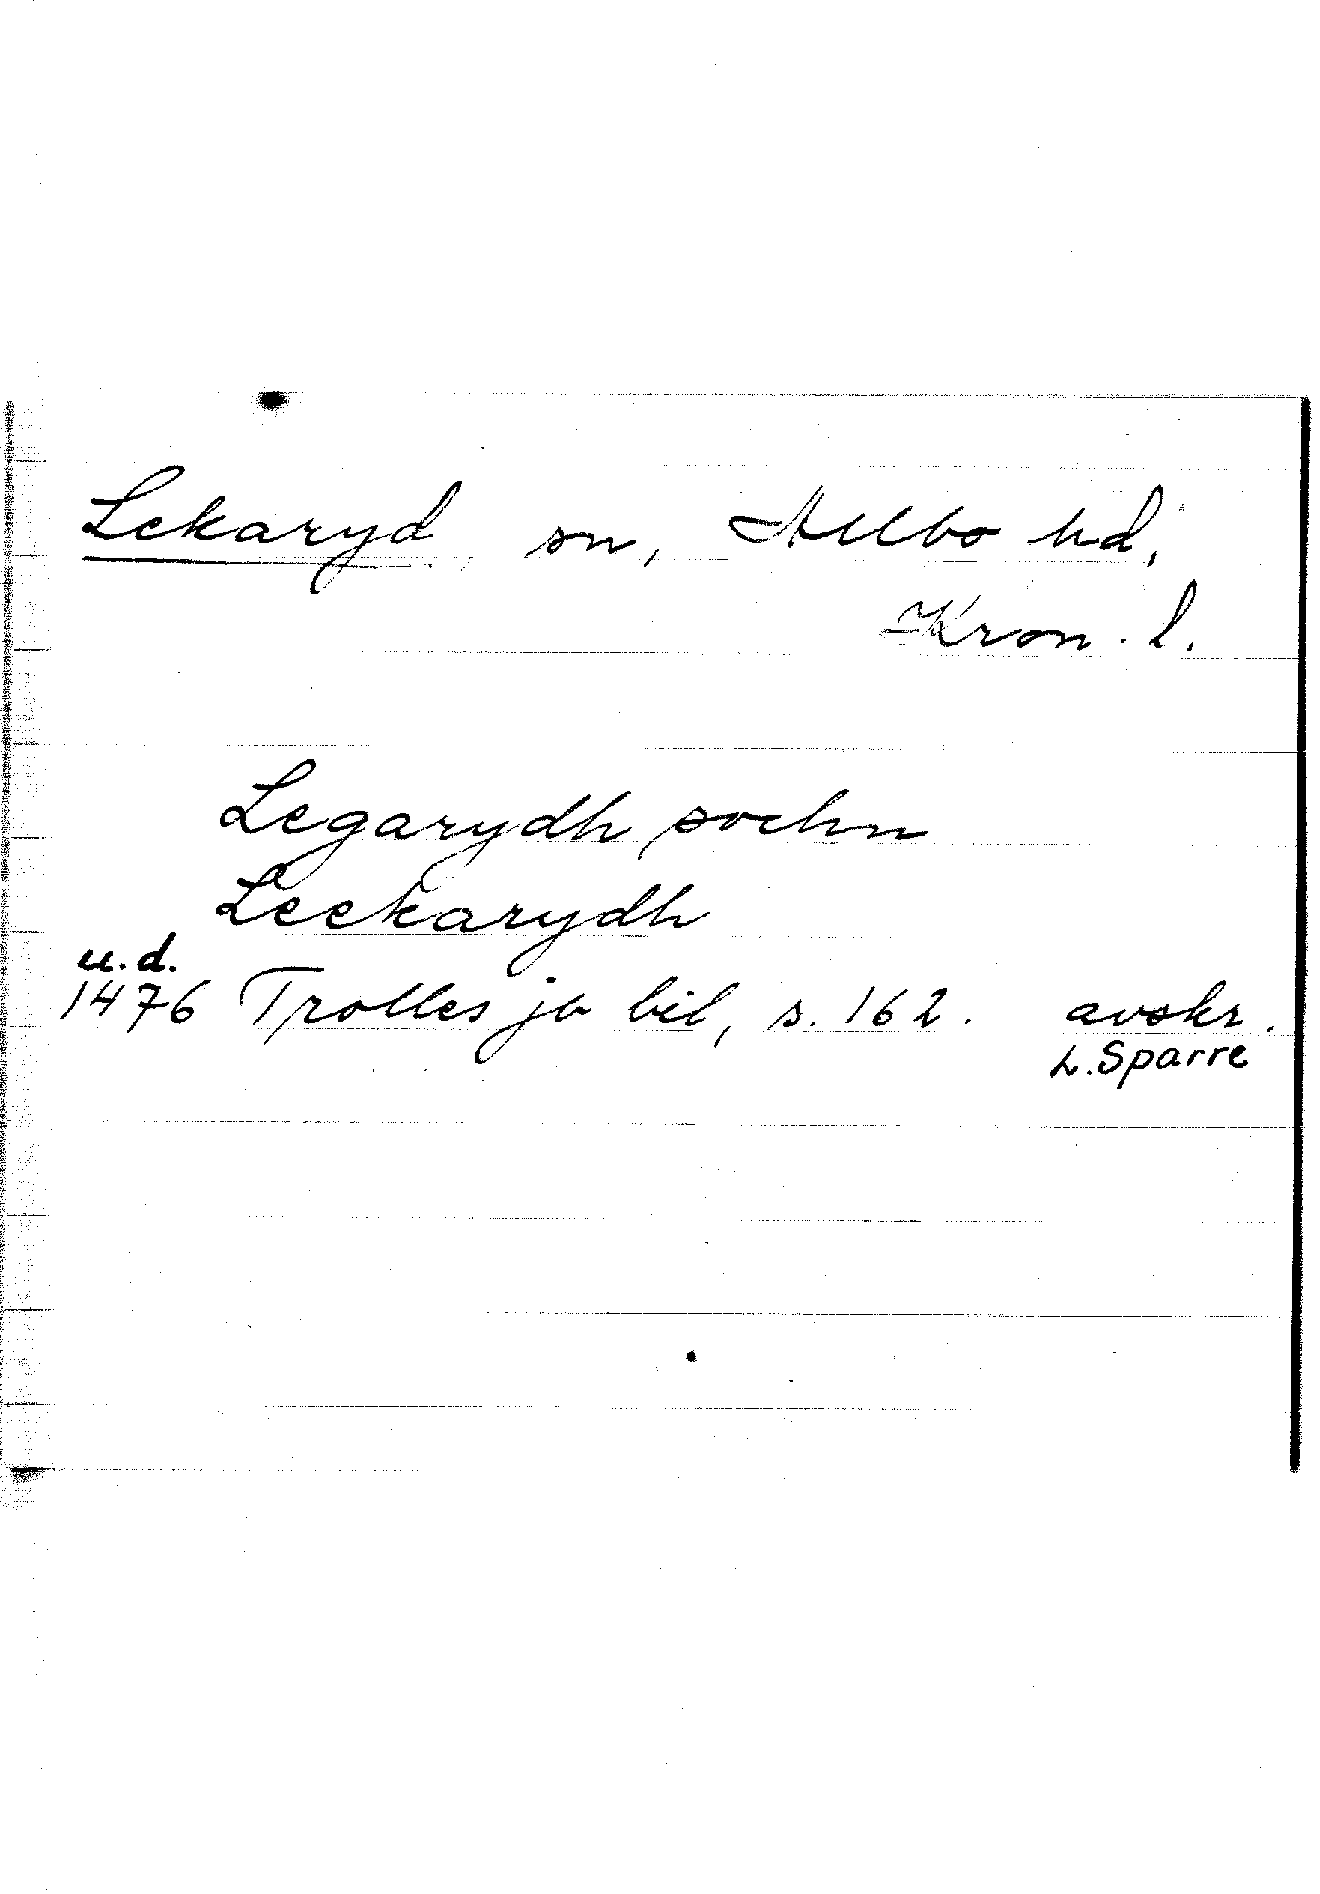 Lekaryd sn, Allbo hd,
Kron. l.
Legarydh sochn
Leekarydh
u.d.
1476 Trolles jb bil, s. 162. avskr.
L. Sparre